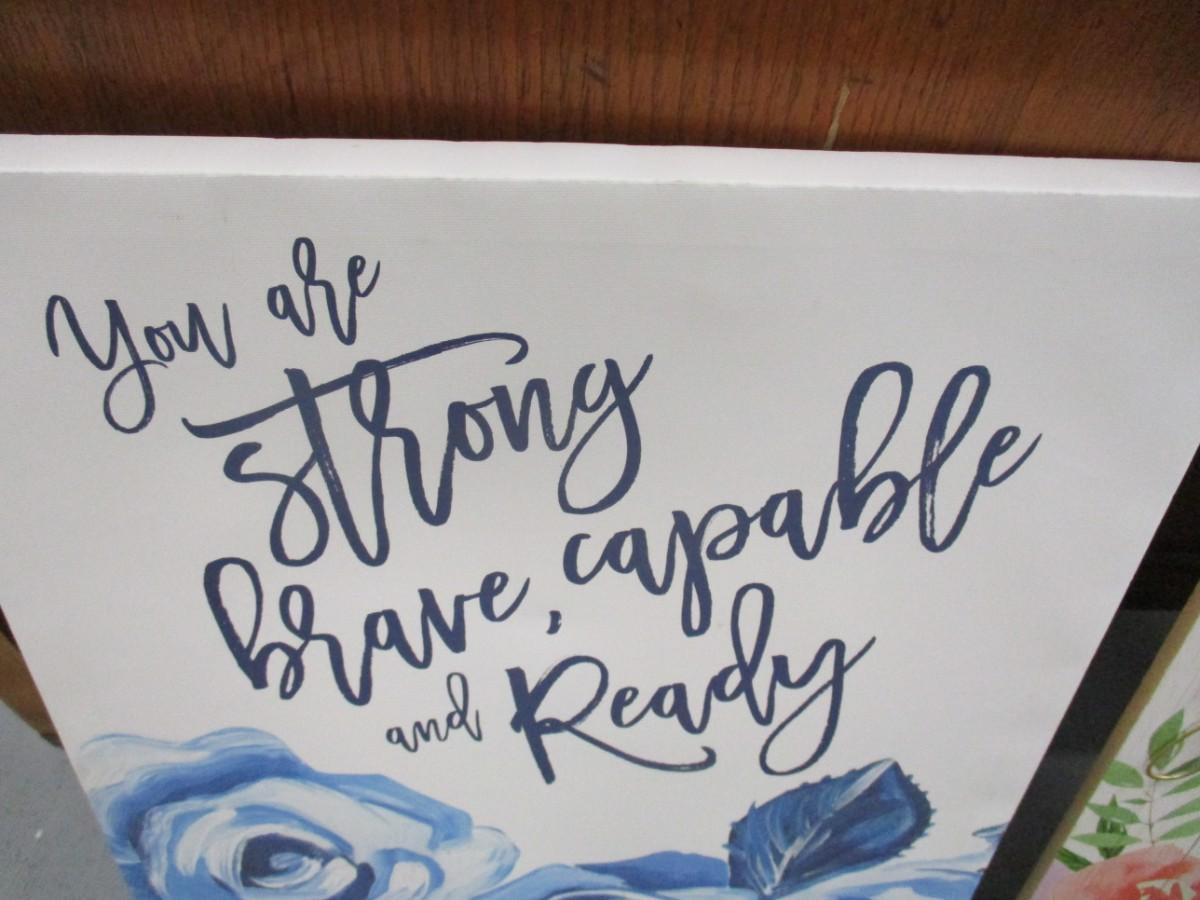 You are
strong
brave, capable
and Ready